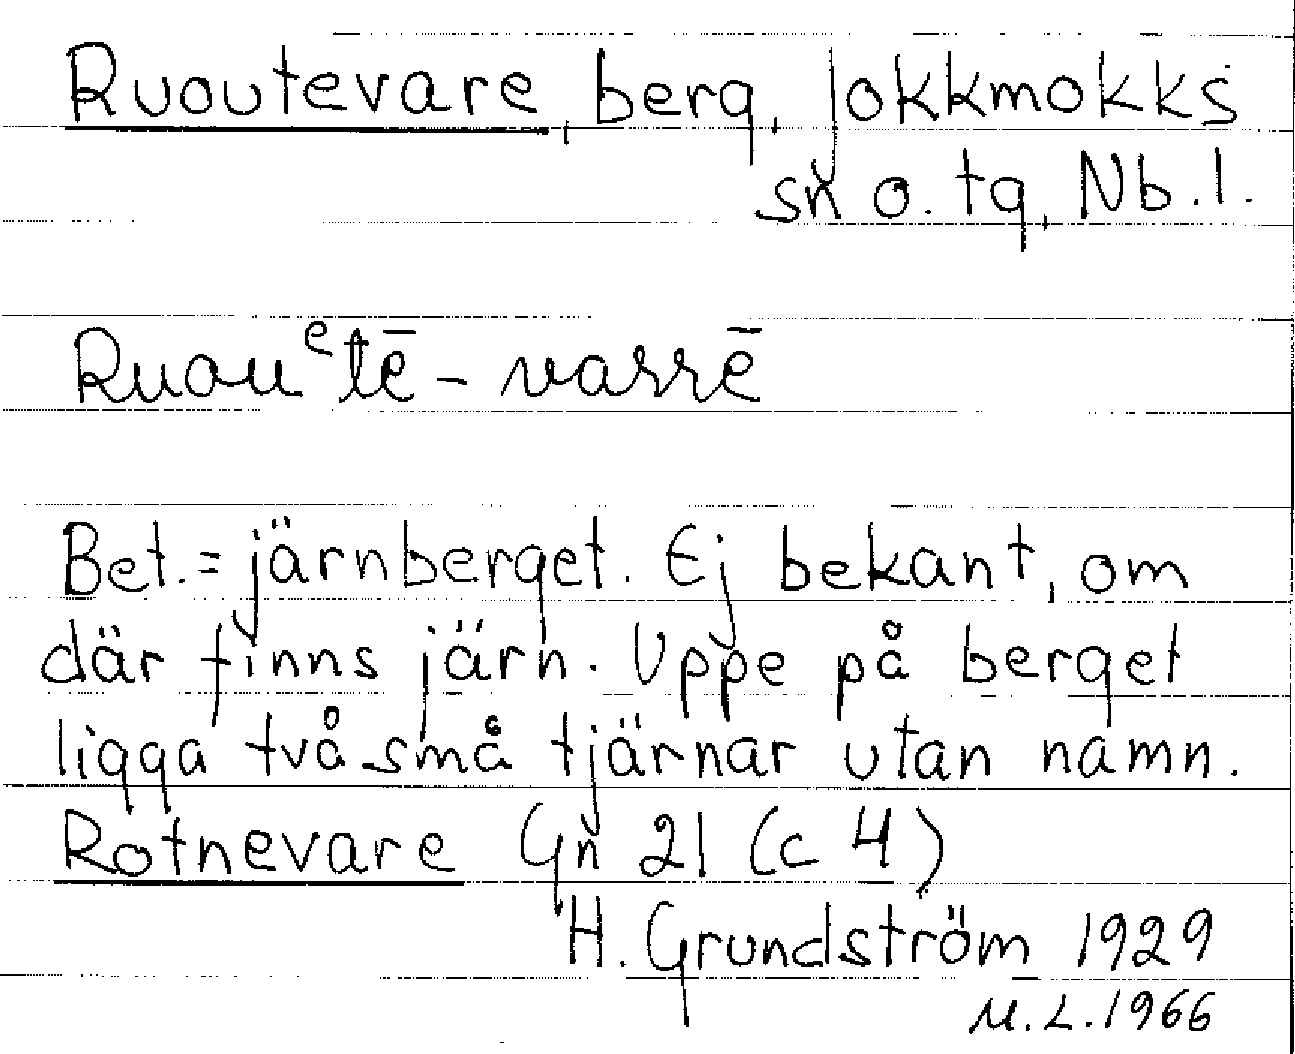 Ruoutevare, berg, Jokkmokks
sn o. tg, Nb. l.
Ruouᵉtē - varrē
Bet. = järnberget. Ej bekant, om
där finns järn. Uppe på berget
ligga två små tjärnar utan namn.
Rotnevare Gn 21 (c 4)
H. Grundström 1929
M. L. 1966